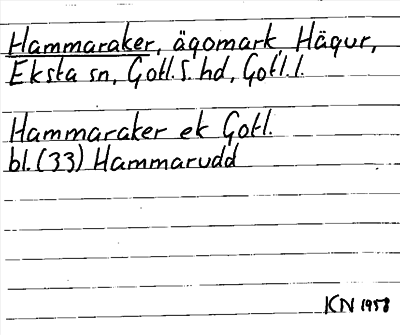 Hammaraker, ägomark, Hägur,
Eksta sn, Gotl. S. hd, Gotl. l.
Hammaraker ek Gotl.
bl. (33) Hammarudd
KN 1958